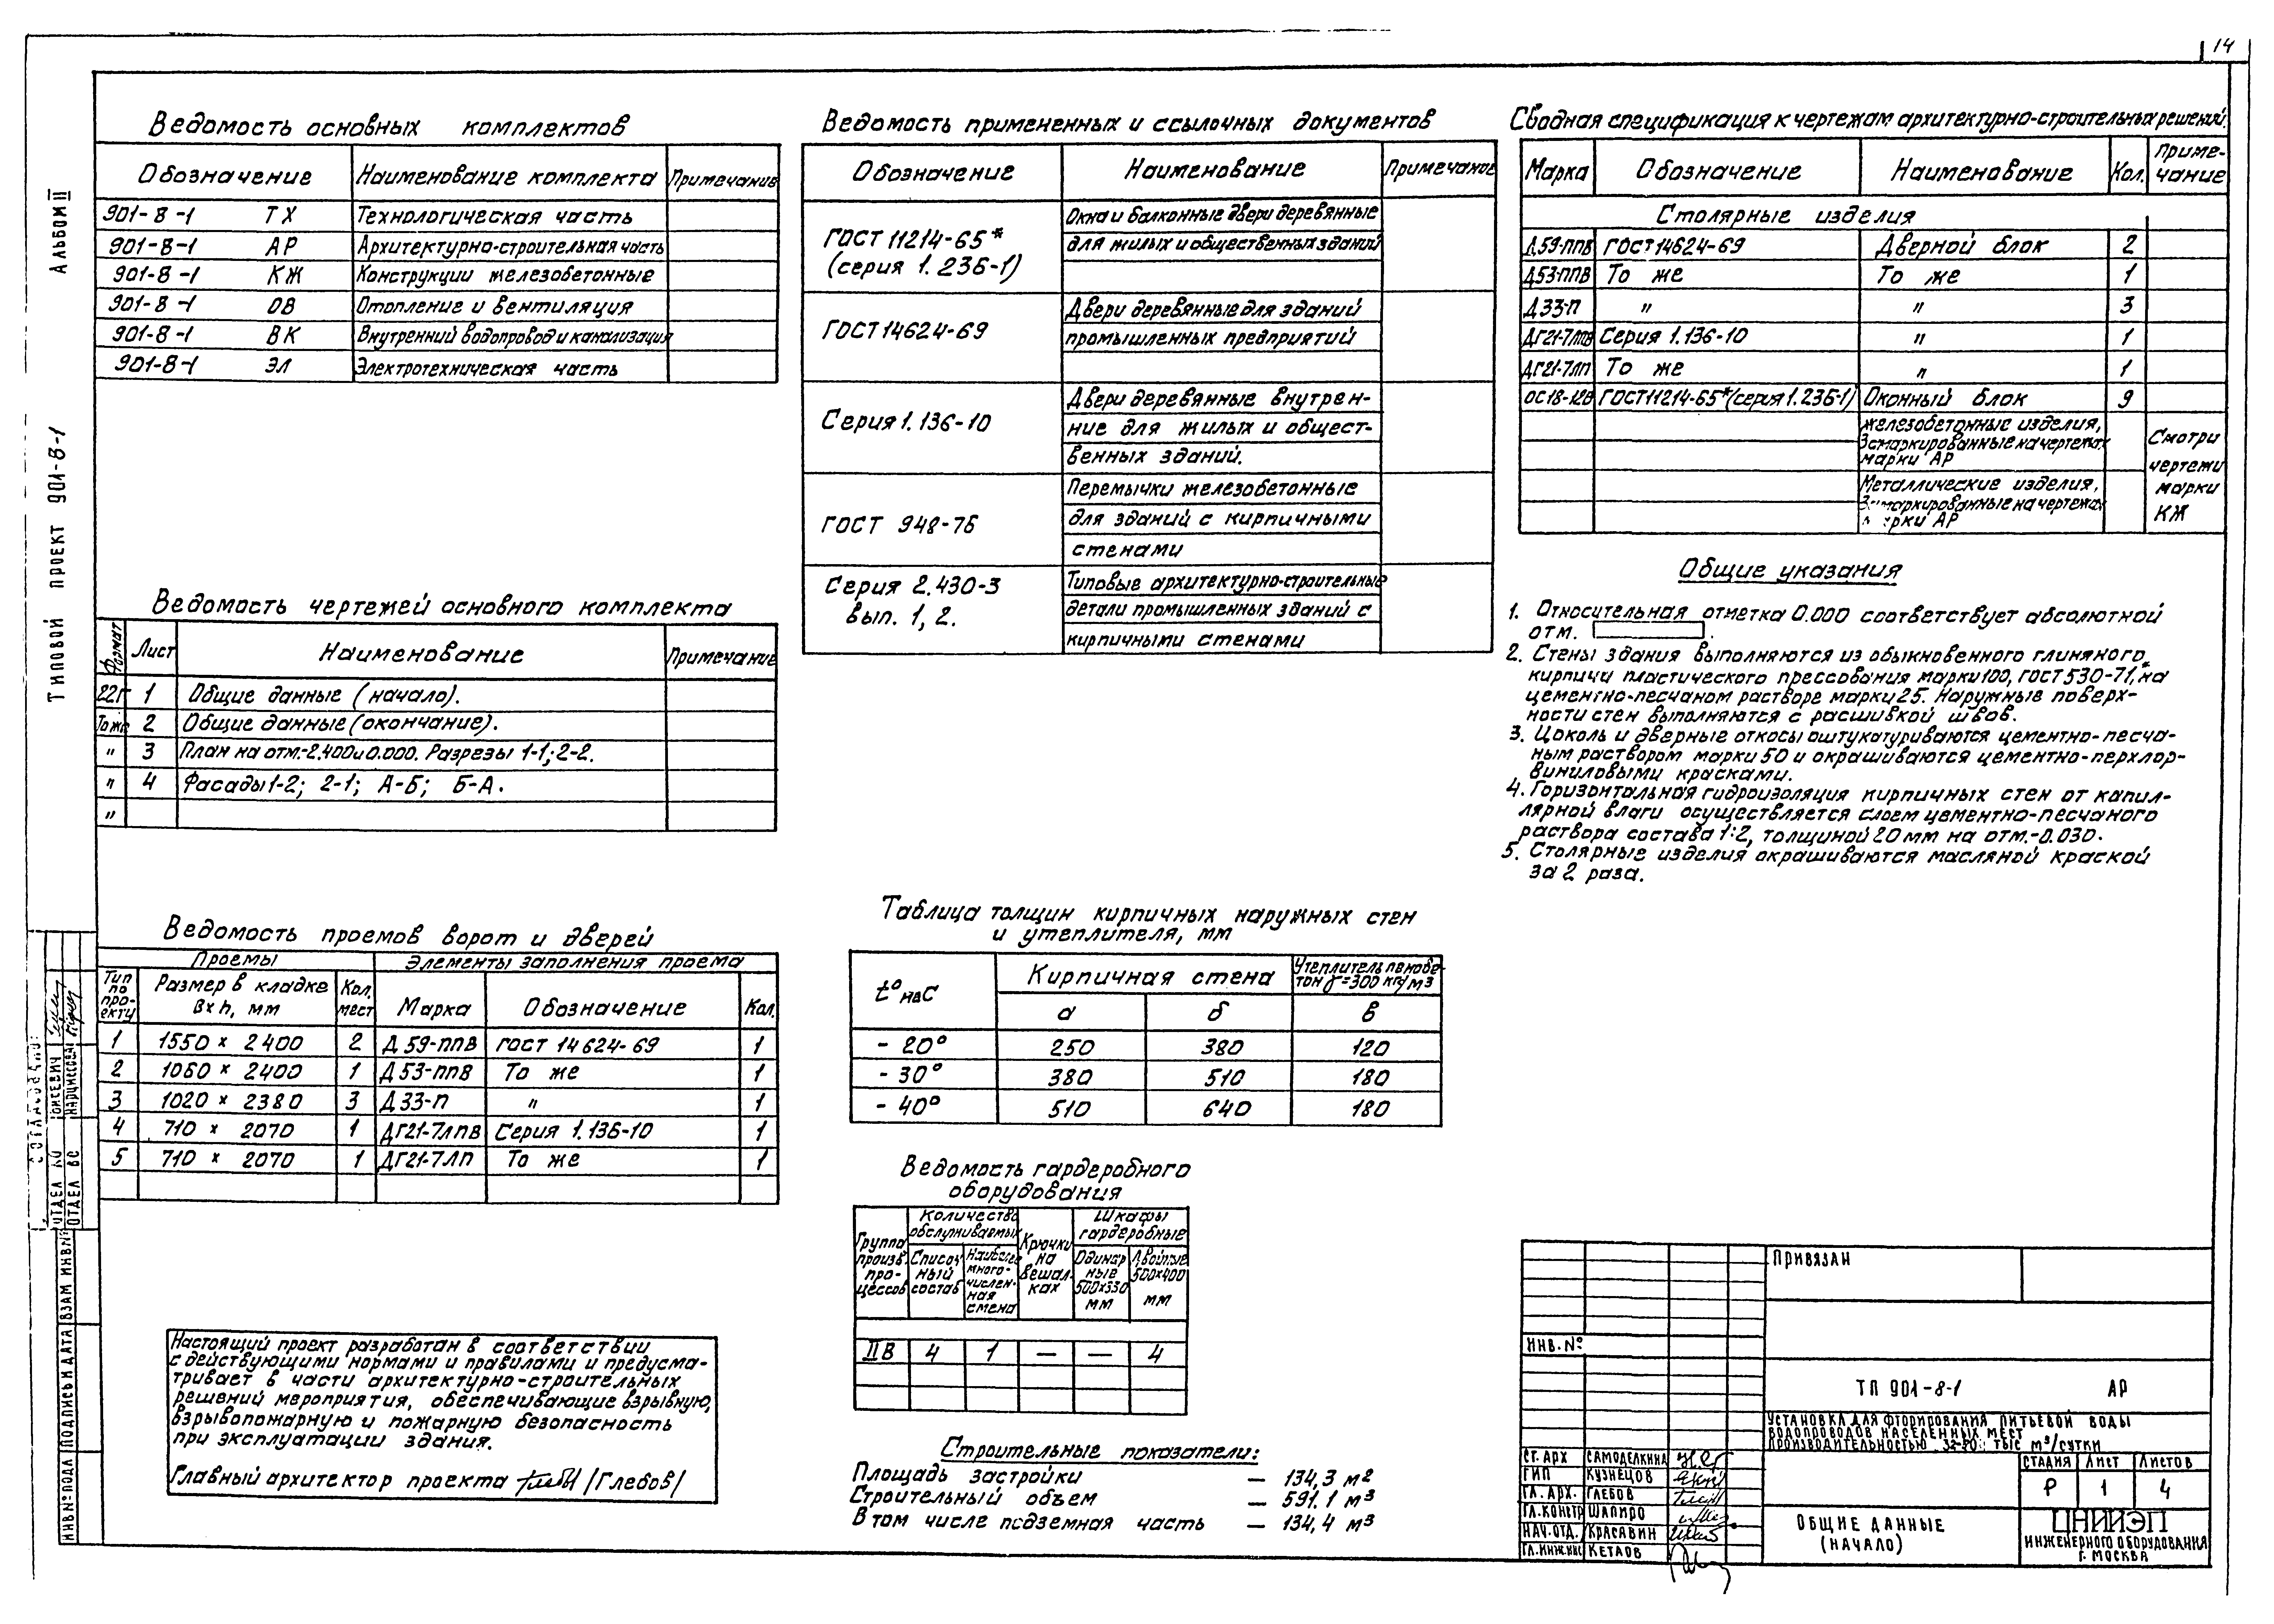 14
Альбом II
Типовой проект 901-8-1
Ведомость основных комплектов
Обозначение Наименование комплекта Примечание
901-8-1 ТХ Технологическая часть
901-8-1 АР Архитектурно-строительная часть
901-8-1 КЖ Конструкции железобетонные
901-8-1 ОВ Отопление и вентиляция
901-8-1 ВК Внутренний водопровод и канализация
901-8-1 ЭЛ Электротехническая часть
Ведомость чертежей основного комплекта
Формат Лист Наименование Примечание
22Г 1 Общие данные (начало).
То же 2 Общие данные (окончание).
" 3 План на отм.-2.400 и 0.000. Разрезы 1-1; 2-2.
" 4 Фасады 1-2; 2-1; А-Б; Б-А.
"
Ведомость проемов ворот и дверей
Проемы Элементы заполнения проема
Тип по проекту Размер в кладке В×h, мм Кол. мест Марка Обозначение Кол.
1 1550 × 2400 2 Д 59-ППВ ГОСТ 14624-69 1
2 1060 × 2400 1 Д 53-ППВ То же 1
3 1020 × 2380 3 Д 33-П " 1
4 710 × 2070 1 ДГ21-7ЛПВ Серия 1.136-10 1
5 710 × 2070 1 ДГ21-7ЛП То же 1
Настоящий проект разработан в соответствии
с действующими нормами и правилами и предусма-
тривает в части архитектурно-строительных
решений мероприятия, обеспечивающие взрывную,
взрывопожарную и пожарную безопасность
при эксплуатации здания.
Главный архитектор проекта /Глебов/
Ведомость примененных и ссылочных документов
Обозначение Наименование Примечание
ГОСТ 11214-65*
(серия 1.236-1)
Окна и балконные двери деревянные
для жилых и общественных зданий
ГОСТ 14624-69
Двери деревянные для зданий
промышленных предприятий
Серия 1.136-10
Двери деревянные внутрен-
ние для жилых и общест-
венных зданий.
ГОСТ 948-76
Перемычки железобетонные
для зданий с кирпичными
стенами
Серия 2.430-3
вып. 1, 2.
Типовые архитектурно-строительные
детали промышленных зданий с
кирпичными стенами
Таблица толщин кирпичных наружных стен
и утеплителя, мм
t° нвС Кирпичная стена Утеплитель пенобе-
тон γ=300 кг/м³
а б в
- 20° 250 380 120
- 30° 380 510 180
- 40° 510 640 180
Ведомость гардеробного
оборудования
Группа произв. процессов
Количество обслуживаемых
Списочный состав
Наиболее многочисленная смена
Крючки на вешалках
Шкафы гардеробные
Одинарные 500×330 мм
Двойные 500×400 мм
IIв 4 1 — — 4
Строительные показатели:
Площадь застройки — 134,3 м²
Строительный объем — 591,1 м³
В том числе подземная часть — 134,4 м³
Сводная спецификация к чертежам архитектурно-строительных решений.
Марка Обозначение Наименование Кол. Приме-
чание
Столярные изделия
Д59-ППВ ГОСТ 14624-69 Дверной блок 2
Д53-ППВ То же То же 1
Д33-П " " 3
ДГ21-7ЛПВ Серия 1.136-10 " 1
ДГ21-7ЛП То же " 1
ОС18-12В ГОСТ 11214-65* (серия 1.236-1) Оконный блок 9
Железобетонные изделия,
замаркированные на чертежах
марки АР
Металлические изделия,
замаркированные на чертежах
марки АР
Смотри
чертежи
марки
КЖ
Общие указания
1. Относительная отметка 0.000 соответствует абсолютной
отм.
2. Стены здания выполняются из обыкновенного глиняного
кирпича пластического прессования марки 100, ГОСТ 530-71*, на
цементно-песчаном растворе марки 25. Наружные поверх-
ности стен выполняются с расшивкой швов.
3. Цоколь и дверные откосы оштукатуриваются цементно-песча-
ным раствором марки 50 и окрашиваются цементно-перхлор-
виниловыми красками.
4. Горизонтальная гидроизоляция кирпичных стен от капил-
лярной влаги осуществляется слоем цементно-песчаного
раствора состава 1:2, толщиной 20 мм на отм.-0.030.
5. Столярные изделия окрашиваются масляной краской
за 2 раза.
Привязан
ИНВ. №
ТП 901-8-1 АР
Установка для фторирования питьевой воды
водопроводов населенных мест
производительностью тыс м³/сутки
Ст. арх Самоделкина
ГИП Кузнецов
Гл. арх. Глебов
Гл. констр Шапиро
Нач. отд. Красавин
Гл. инж. инс Кетаов
Стадия Лист Листов
Р 1 4
Общие данные
(начало)
ЦНИИЭП
инженерного оборудования
г. Москва
Согласовано:
Отдел ВС Нарциссова
Инв № подл Подпись и дата Взам инв №